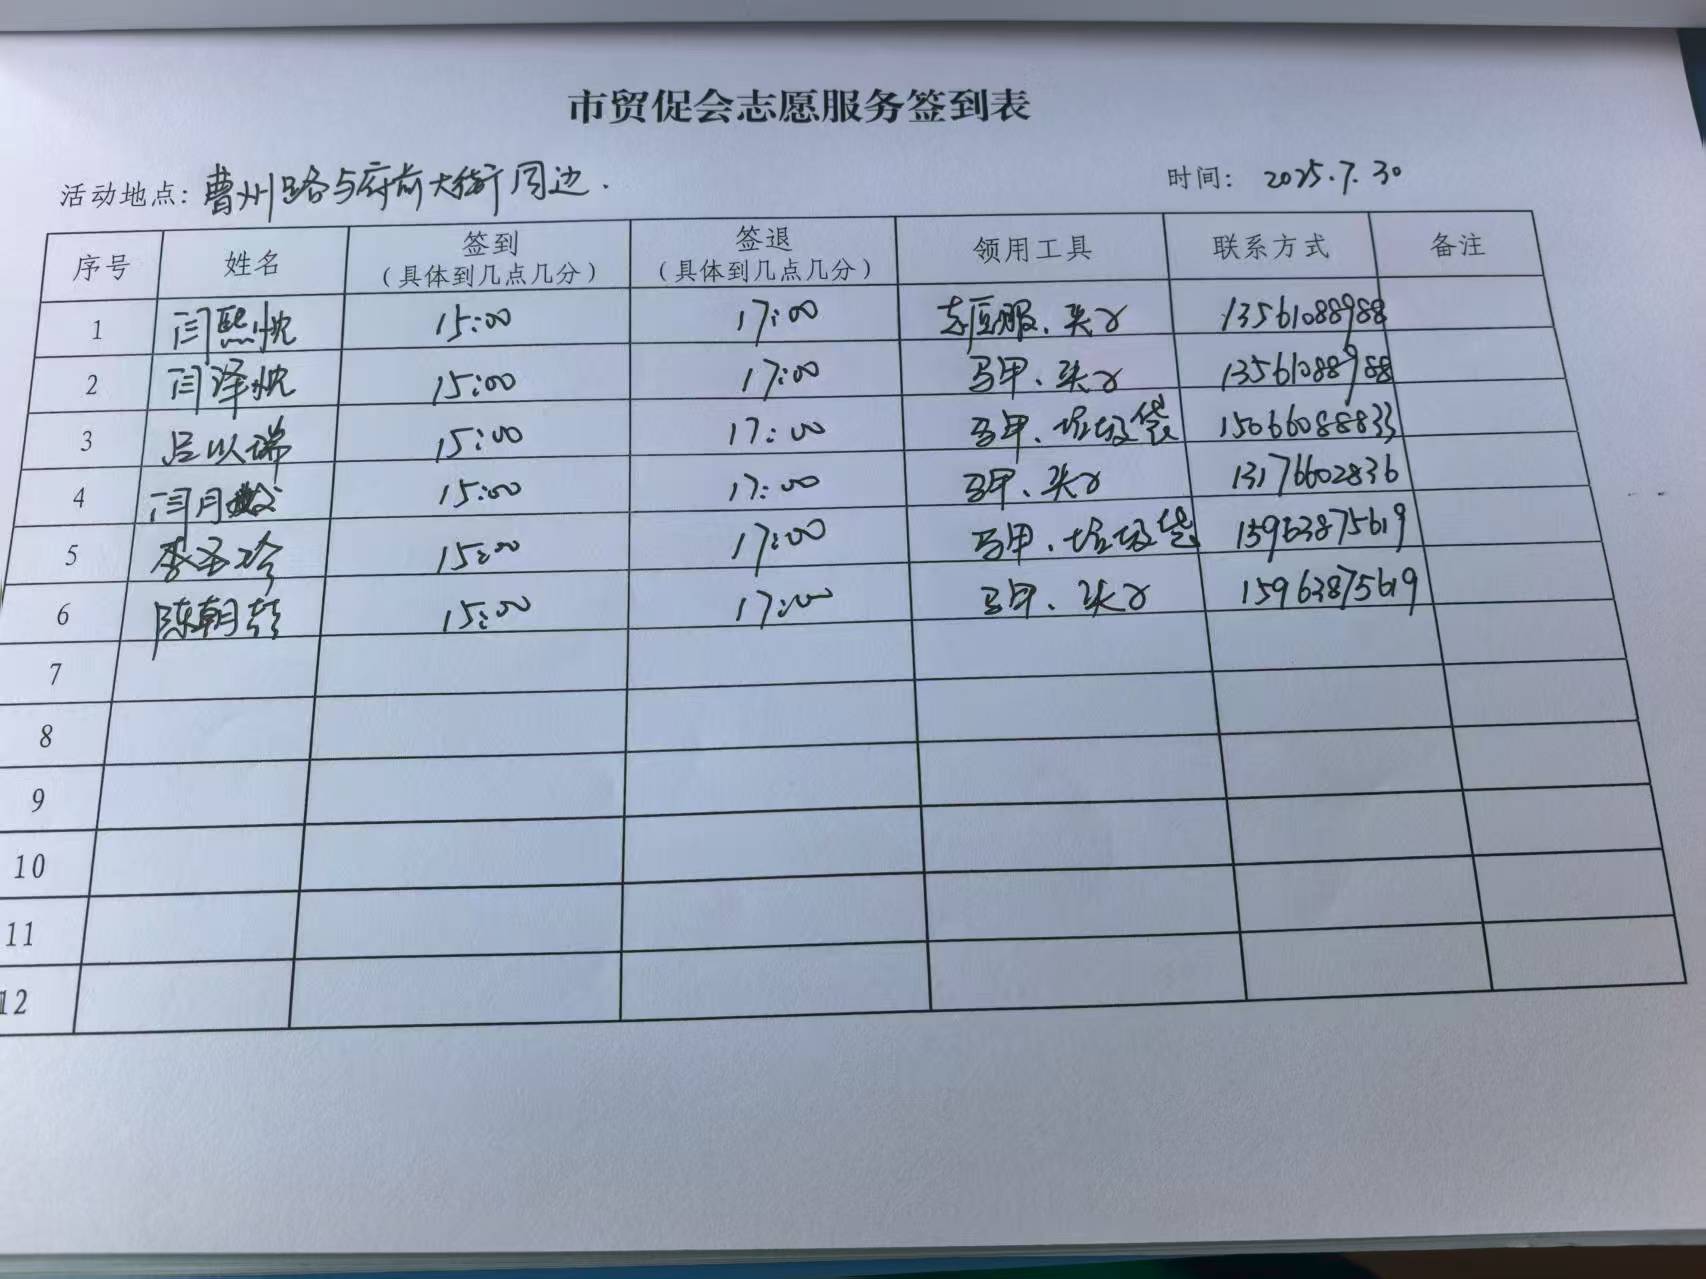 市贸促会志愿服务签到表
活动地点：曹州路与府前大街周边. 时间： 2025.7.30
序号 姓名 签到（具体到几点几分） 签退（具体到几点几分） 领用工具 联系方式 备注
1 闫熙忱 15:00 17:00 志愿服、夹子 13561088988
2 闫泽忱 15:00 17:00 马甲、夹子 13561088988
3 吕以瑞 15:00 17:00 马甲、垃圾袋 15066088833
4 闫月 15:00 17:00 马甲、夹子 13176602836
5 李圣玲 15:00 17:00 马甲、垃圾袋 15963875619
6 陈朝 15:00 17:00 马甲、夹子 15963875619
7
8
9
10
11
12